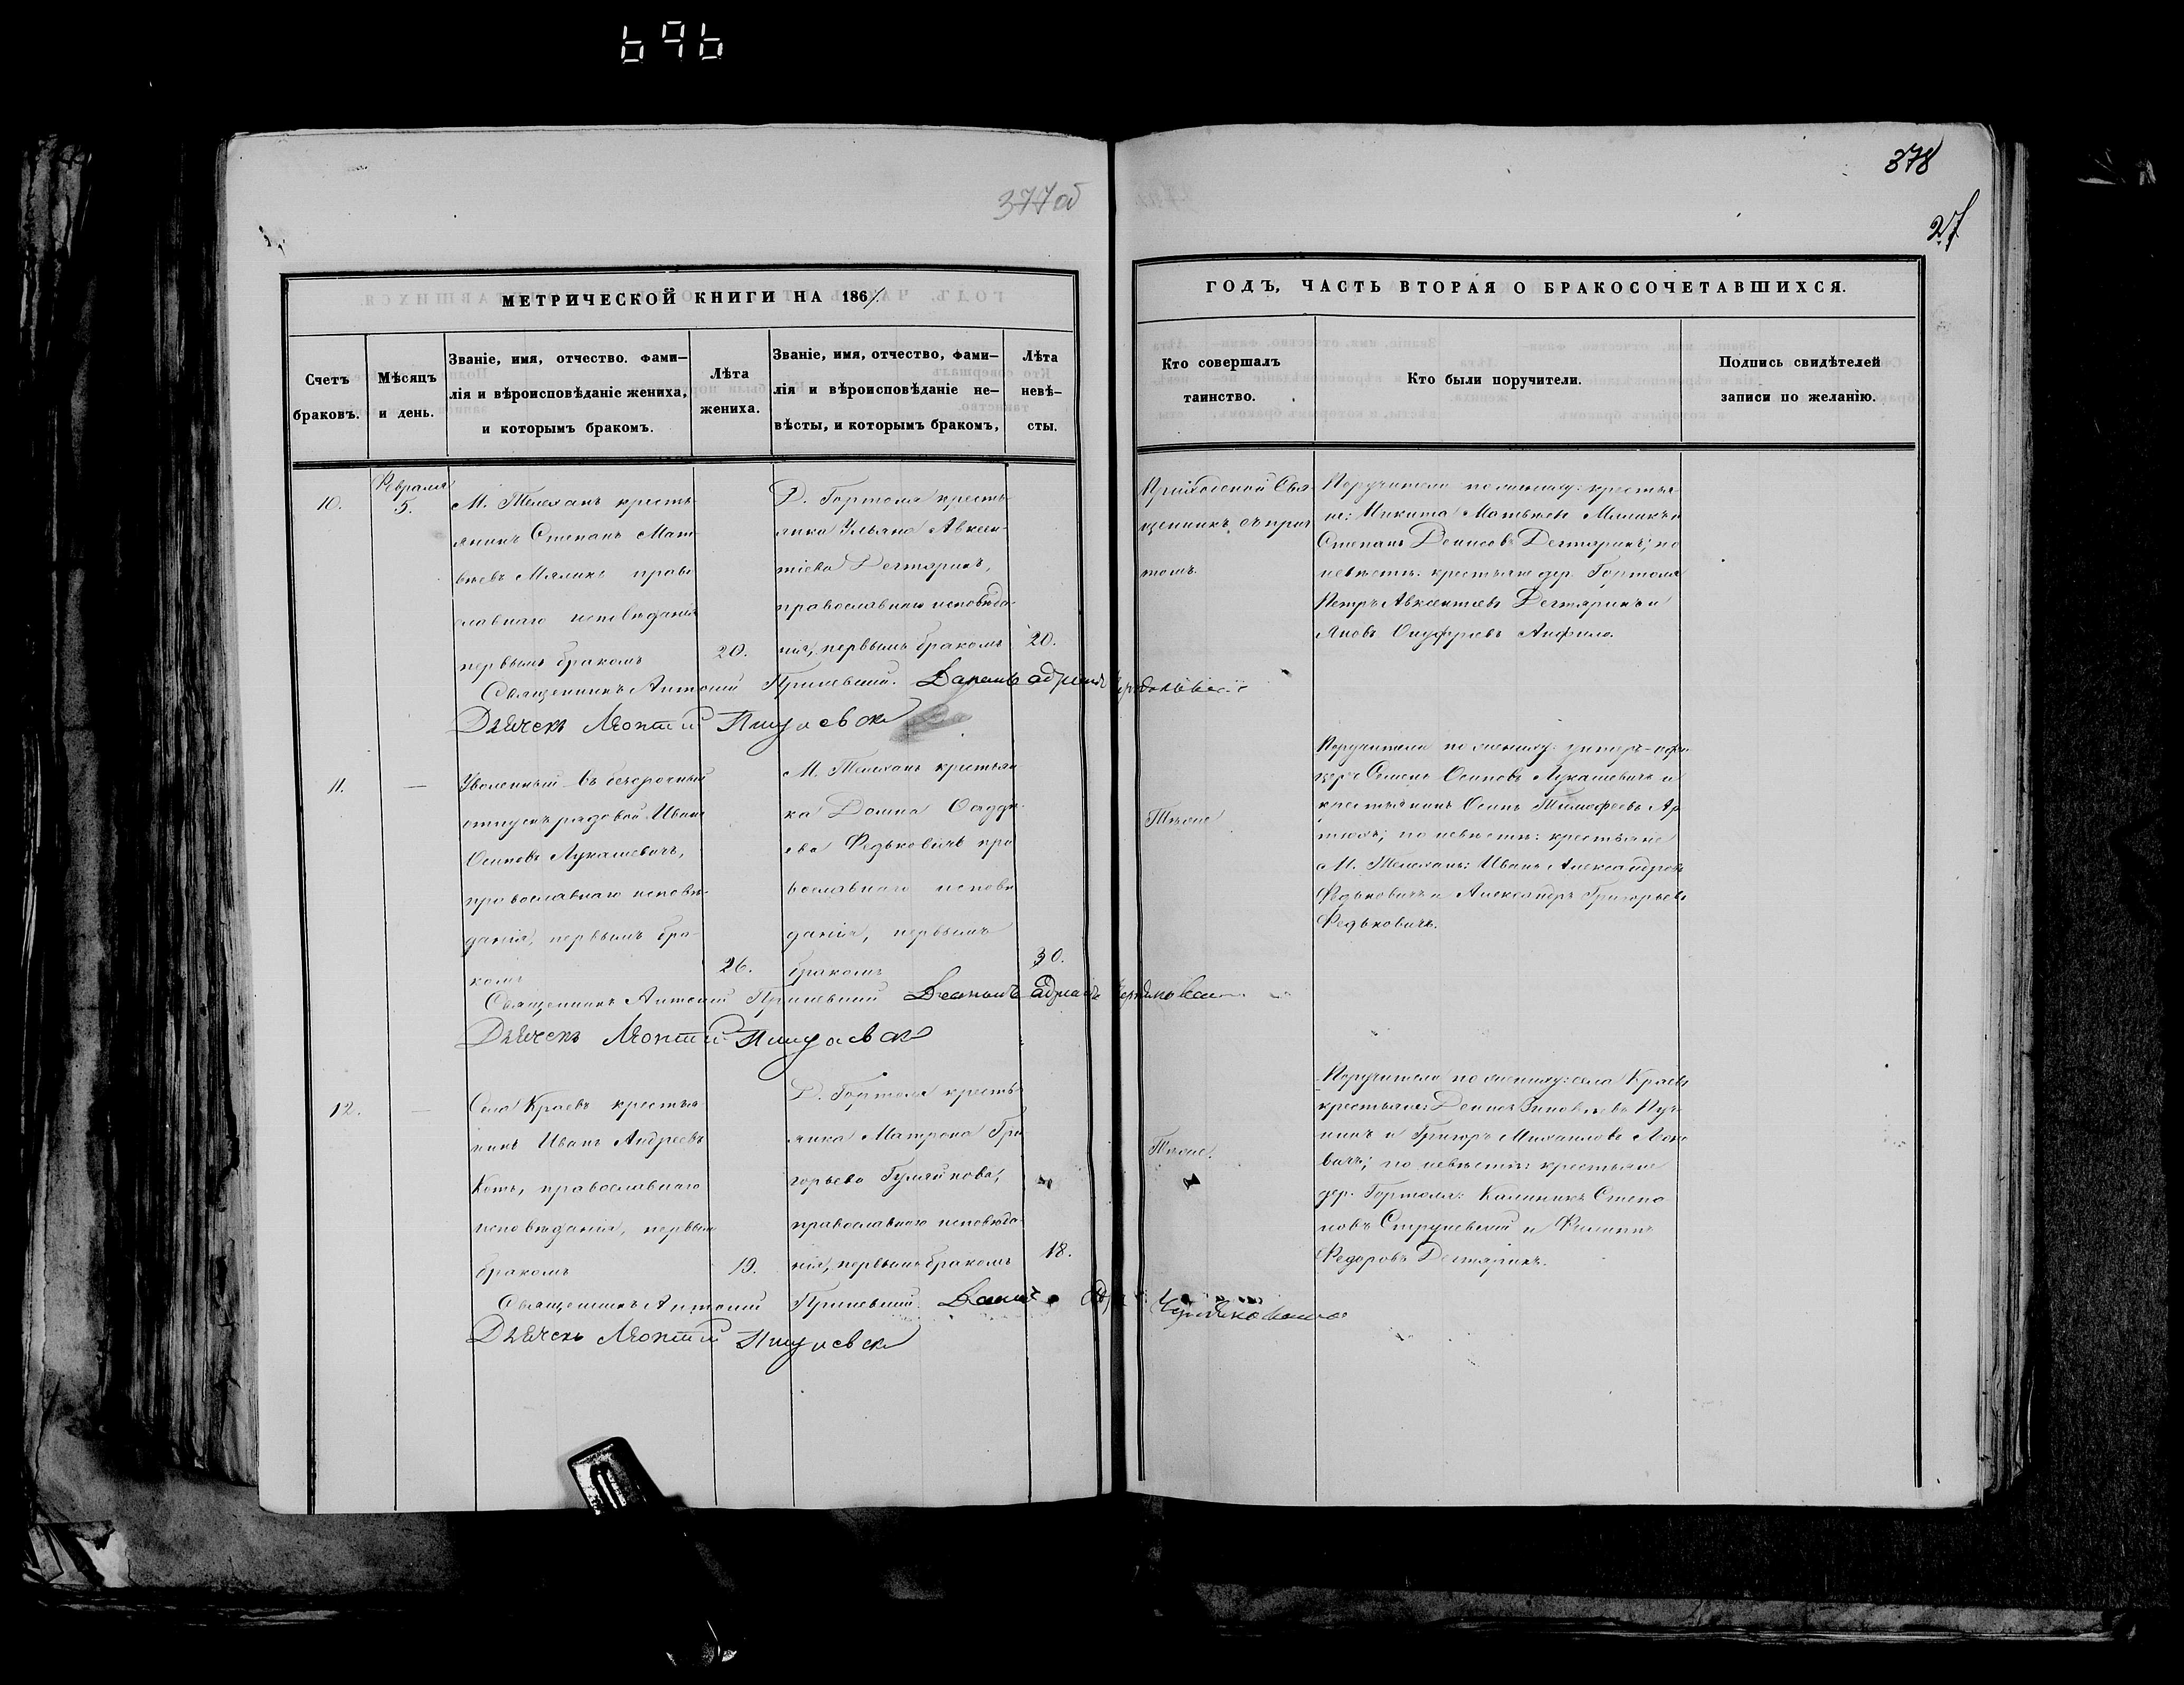 696
377 об
378
27
МЕТРИЧЕСКОЙ КНИГИ НА 186/
ГОДЪ, ЧАСТЬ ВТОРАЯ О БРАКОСОЧЕТАВШИХСЯ.
Счетъ
браковъ.
Мѣсяцъ
и день.
Званіе, имя, отчество. фами–
лія и вѣроисповѣданіе жениха,
и которымъ бракомъ.
Лѣта
жениха.
Званіе, имя, отчество, фами–
лія и вѣроисповѣданіе не–
вѣсты, и которымъ бракомъ,
Лѣта
невѣ–
сты.
Кто совершалъ
таинство.
Кто были поручители.
Подпись свидѣтелей
записи по желанію.
10.
Февраля
5.
М. Телеханъ кресть
янинъ Степанъ Мат-
вѣевъ Мяликъ право
славнаго исповѣданія
первымъ бракомъ
20.
Д. Гортоля кресть-
янка Ульяна Авксен-
тіева Дегтярикъ,
православнаго исповѣда-
нія, первымъ бракомъ
20.
Приходской Свя-
щенникъ съ прич
томъ.
Поручители по жениху: крестья-
не: Никита Матвѣевъ Мяликъ и
Степанъ Денисовъ Дегтярикъ; по
невѣстѣ: крестьяне дер. Гортоля
Петръ Авксентіевъ Дегтярикъ и
Яковъ Онуфріевъ Анфило.
Священникъ Антоній
Дьячекъ Леонтій
11.
—
Уволенный въ безсрочный
отпускъ рядовой Иванъ
Осиповъ Лукашевичъ,
православнаго исповѣ-
данія, первымъ бра-
комъ
26.
М. Телеханъ крестьян
ка Домна Фадде
ева Федьковичъ пра
вославнаго исповѣ
данія, первымъ
бракомъ
30.
Тѣже
Поручители по жениху: унтеръ-офи
церъ Семенъ Осиповъ Лукашевичъ и
крестьянинъ Осипъ Тимофеевъ Ар
тюхъ; по невѣстѣ: крестьяне
М. Телеханъ: Иванъ Александровъ
Федьковичъ и Александръ Григорьевъ
Федьковичъ.
Священникъ Антоній
Дьячекъ Леонтій
12.
—
Села Краевъ крестья
нинъ Иванъ Андреевъ
Котъ, православнаго
исповѣданія, первымъ
бракомъ
19.
Д. Гортоля кресть
янка Матрона Гри
горьева
православнаго исповѣда-
нія, первымъ бракомъ
18.
Тѣже.
Поручители по жениху: села Краевъ
крестьяне: Денисъ Зиновьевъ
и Григоръ Михаиловъ
по невѣстѣ: крестьяне
дер. Гортоля: Калиникъ Степа
новъ Струневскій и Филиппъ
Федоровъ Дегтярикъ.
Священникъ Антоній
Дьячекъ Леонтій